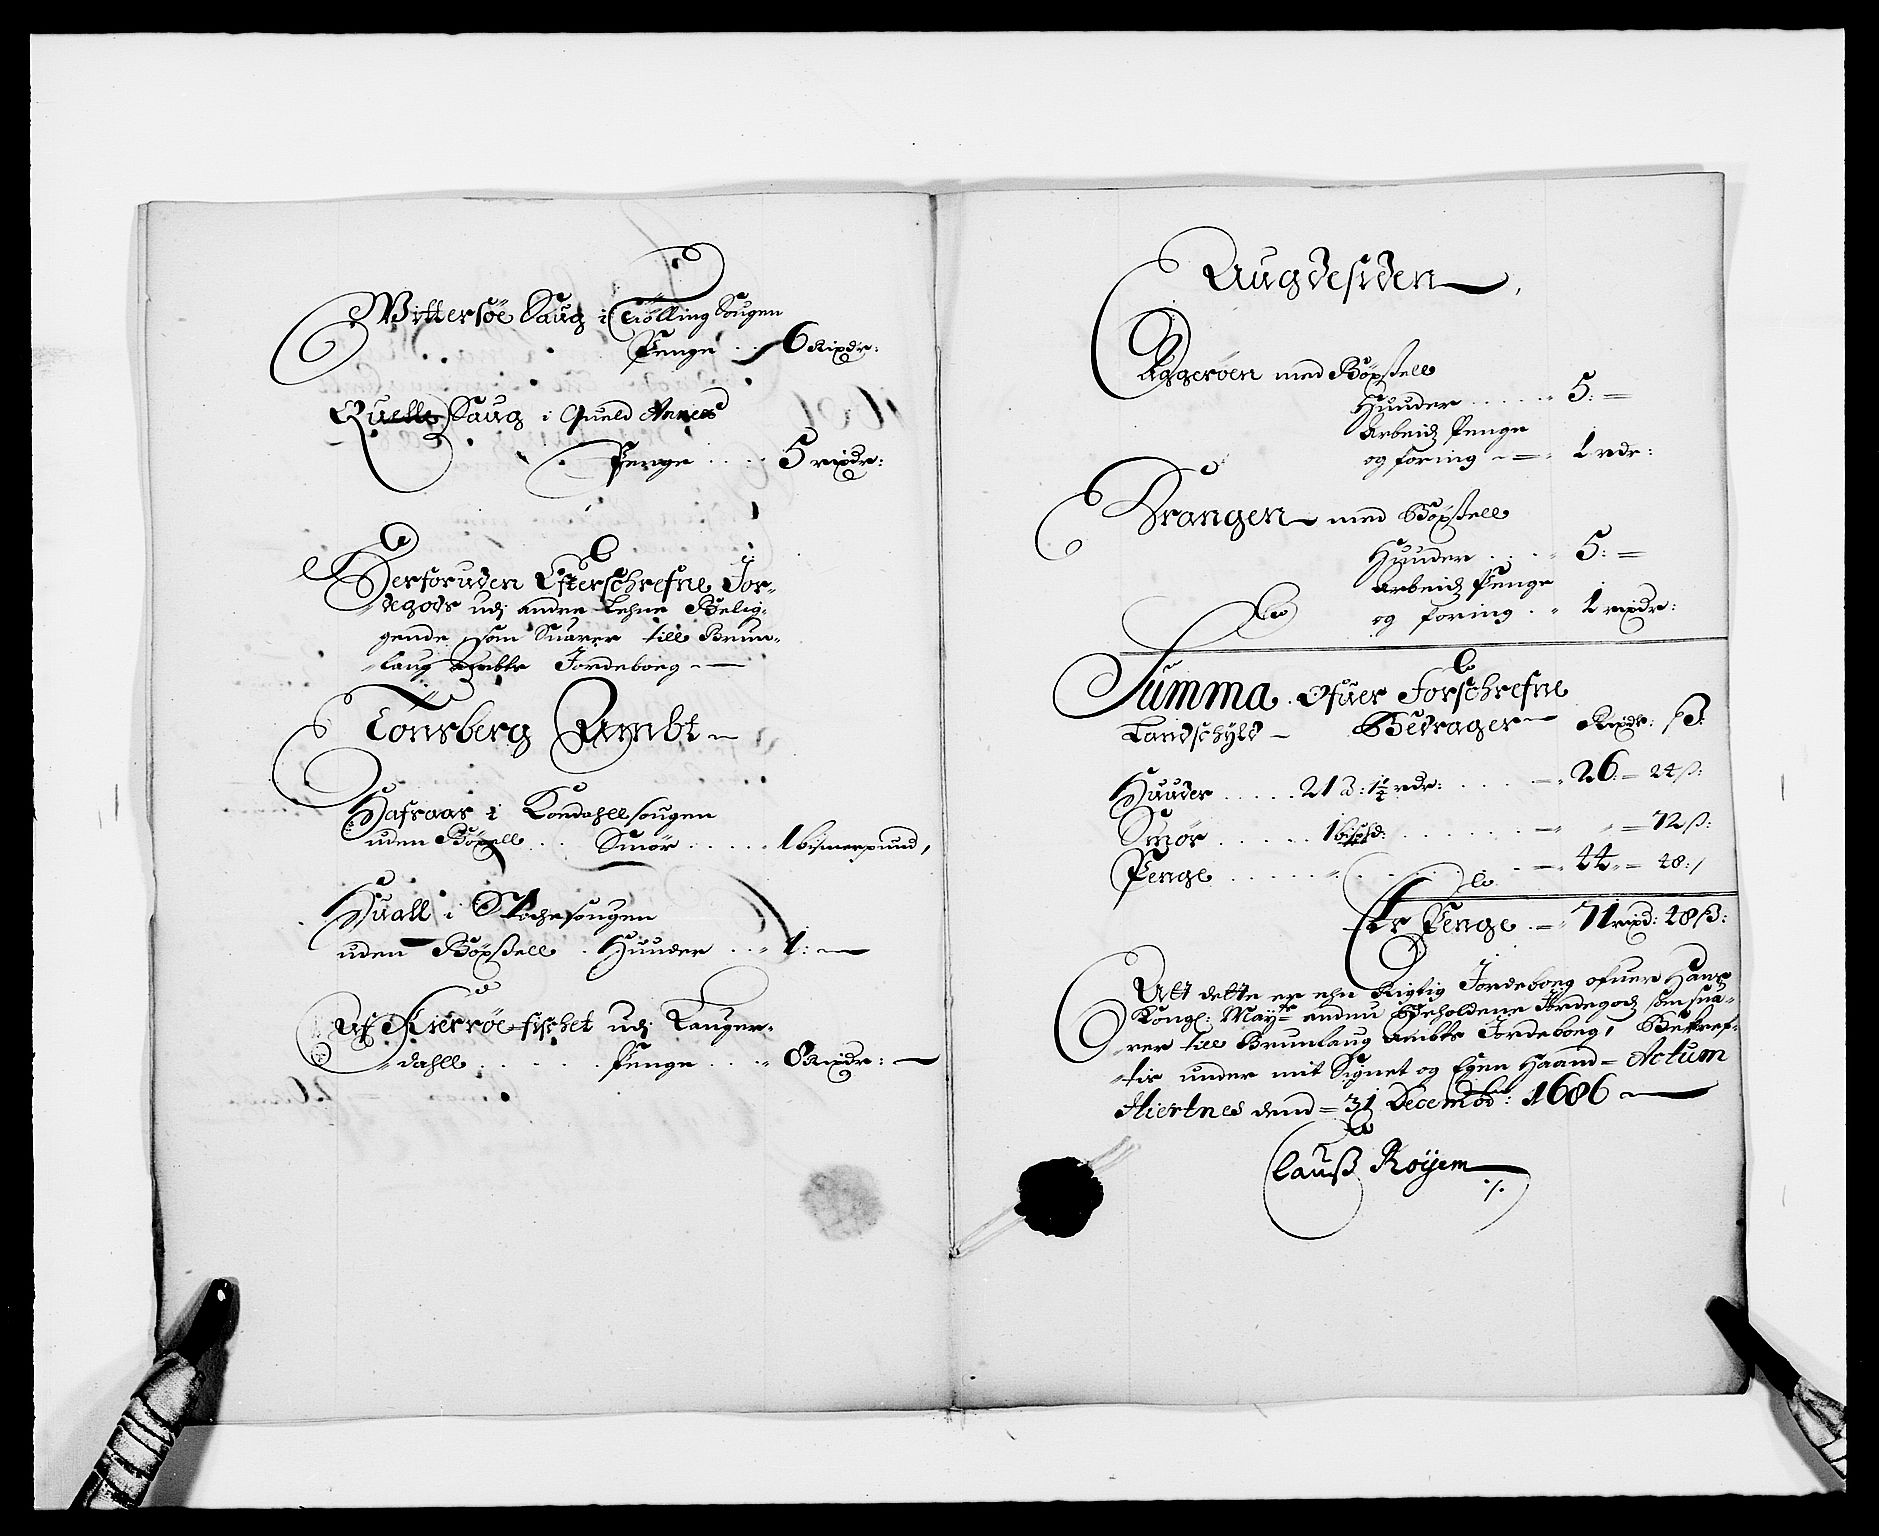 Wittersøe Saug i Tiølling Sougen
Penge . . 6 Rixdr:
Quelle Saug i Queld Annex
Penge . . . . 5 rixdr:
Derforuden Efterschrefne Jor-
degods udj andre Lehne Belig-
gende, som Suarer till Brun-
laug Ambts Jordeboeg —
Tonsberg Ambt —
Hafraar i Kondahllsougen
uden Böxell . . Smör . . . . . 1 bismerpund,
Huall i Stochesougen
uden Böxsell . Huuder . . „ 1: —
Af Kierrøe fischet udj Lauger-
dahll . . . . . . Penge . . . „ 8 Rixdr: —
Augdesiden ,
Aggerøen med Böxsell
Huuder . . . . . „ 5: =
Arbeidz Penge
og foring - = „ 1 rdr:
Krangen med Böxsell
Huuder . . . „ 5: =
Arbeidz Penge
og foring . „ 1 rixdr:
Summa Ofuer Forschrefne
Landschyld - Bedrager Rixdr: ß:
Huuder . . . . . 21 3: 1¼ rdr: . . . . — „ 26: = 24 ß:
Smör . . . . . . 1 bispd: . . . . . . — „ = 72 ß:
Penge . . . . . „ . . . . . . — „ 44 „ = 48: /
Er Penge . = „ 71 rixd: 48 ß:
Att dette er ehn Rigtig Jordeboeg ofuer Hans
Kongl: Mayts endnu Beholdene Jordegodz som sua-
rer till Brunlaug Ambts Jordeboeg, Bekref-
tis under mit Signet og Egen Haand = Actum
Hiertnes dend = 31 Decembr: 1686 —
Clauß Röyem